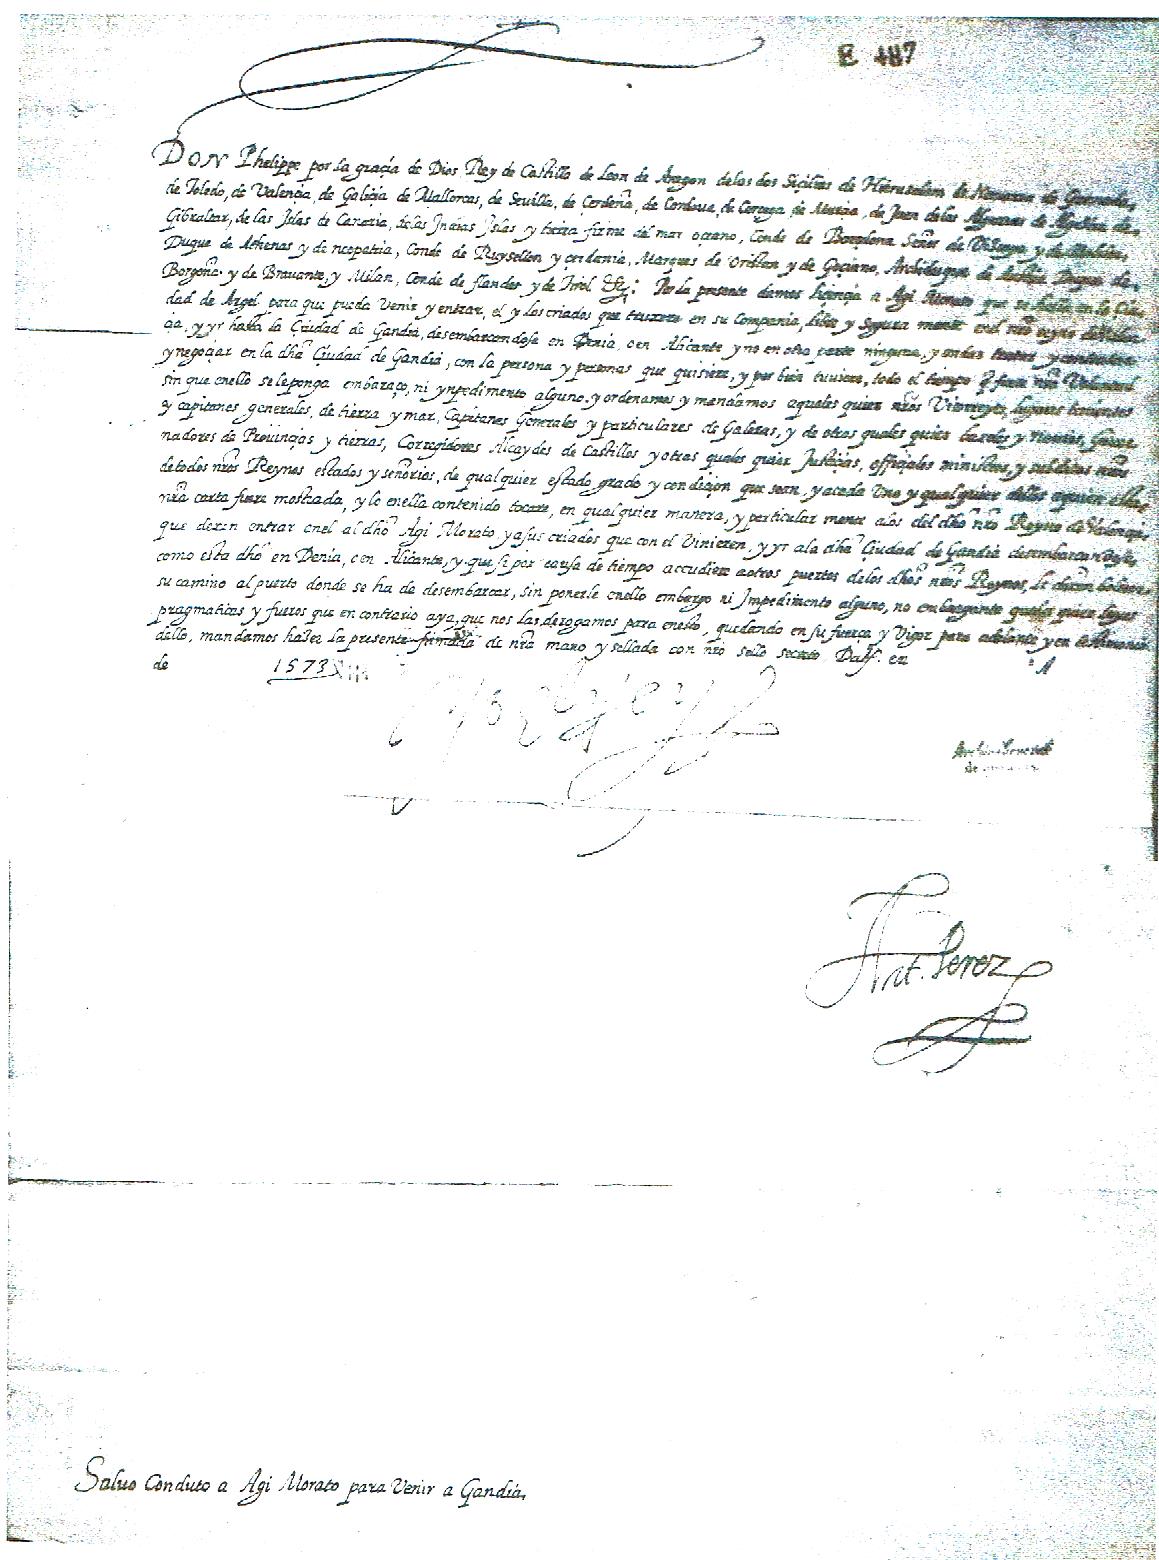 E 487
DON Phelippe por la graçia de Dios Rey de Castilla de Leon de Aragon delas dos Siçilias de Hierusalem de Nauarra de Granada,
de Toledo, de Valençia, de Galiçia de Mallorcas, de Seuilla, de Cerdeña, de Cordoua, de Corçega de Murçia, de Jaen delos Algarues de Algezira de
Gibraltar, de las Islas de Canaria, delas Indias Islas y tierra firme del mar oceano, Conde de Barçelona Señor de Vizcaya y de Molina,
Duque de Athenas y de neopatria, Conde de Ruysellon y cerdania, Marques de Oristan y de Goçiano, Archiduque de Austria Duque de
Borgoña y de Brauante, y Milan, Conde de flandes y de Tirol &c; Por la presente damos liçençia a Agi Morato que se halla en la Ciu
dad de Argel para que pueda Venir y entrar, el y los criados que truxere en su Compania, libre y segura mente enel nro reyno de Valen
çia, y yr hasta la Ciudad de Gandia, desembarcandose en Denia o en Alicante y no en otra parte ninguna, y andar tratar y
y negoçiar en la dha Ciudad de Gandia, con la persona y personas que quisiere, y por bien tuuiere, todo el tiempo q fuere nra Voluntad
sin que enello se le ponga embaraço, ni ynpedimento alguno, y ordenamos y mandamos a quales quier nros Visorreyes, lugares tinientes
y capitanes generales, de tierra y mar, Capitanes Generales y particulares de Galeras, y de otros quales quier baxeles y nauios, Gouer
nadores de Prouinçias y tierras, Corregidores Alcaydes de Castillos y otras quales quier Justiçias, offiçiales ministros, y subditos nros
de todos nros Reynos estados y señorios, de qualquier estado grado y condiçion que sean, y a cada Uno y qualquier dellos a quien esta
nra carta fuere mostrada, y lo enella contenido tocare, en qualquier manera, y particular mente a los del dho nro Reyno de Valençia,
que dexen entrar enel al dho Agi Morato y a sus criados que con el Vinieren, y yr a la dha Ciudad de Gandia desembarcandose,
como esta dho en Denia, o en Alicante, y que si por causa de tiempo accudiere a otros puertos de los dhos nros Reynos, le dexen
su camino al puerto donde se ha de desembarcar, sin ponerle enello embargo ni Impedimento alguno, no embargante quales quier leyes
pragmaticas y fueros que en contrario aya, que nos las derogamos para enesto, quedando en su fuerça y Vigor para adelante, y en testimonio
dello, mandamos hazer la presente firmada de nra mano y sellada con nro sello secreto Datt. en A
de 1573
Yo el Rey
Ant. Perez
Saluo Conduto a Agi Morato para Venir a Gandia,